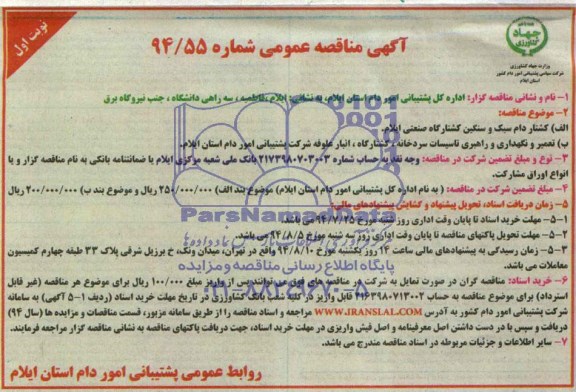 نوبت اول
جهاد
کشاورزی
وزارت جهاد کشاورزی
شرکت سهامی پشتیبانی امور دام کشور
استان ایلام
آگهی مناقصه عمومی شماره ۹۴/۵۵
۱- نام و نشانی مناقصه گزار: اداره کل پشتیبانی امور دام استان ایلام، به نشانی: ایلام، سه راهی دانشگاه، جنب نیروگاه برق
۲- موضوع مناقصه:
الف) کشتار دام سبک و سنگین کشتارگاه صنعتی ایلام.
ب) تعمیر و نگهداری و راهبری تاسیسات سردخانه، کشتارگاه، انبار علوفه شرکت پشتیبانی امور دام استان ایلام.
۳- نوع و مبلغ تضمین شرکت در مناقصه: وجه نقد به حساب شماره ۲۱۷۳۹۸۰۷۰۳۰۰۳ بانک ملی شعبه مرکزی ایلام یا ضمانتنامه بانکی به نام مناقصه گزار و یا
انواع اوراق مشارکت.
۴- مبلغ تضمین شرکت در مناقصه: (به نام اداره کل پشتیبانی امور دام استان ایلام) موضوع بند الف) ۲۵۰/۰۰۰/۰۰۰ ریال و موضوع بند ب) ۲۰۰/۰۰۰/۰۰۰ ریال
۵- زمان دریافت اسناد، تحویل پیشنهاد و گشایش پیشنهادهای مالی:
۱-۵- مهلت خرید اسناد تا پایان وقت اداری روز شنبه مورخ ۹۴/۷/۲۵ می باشد.
۲-۵- مهلت تحویل پاکتهای مناقصه تا پایان وقت اداری روز سه شنبه مورخ ۹۴/۸/۵ می باشد.
۳-۵- زمان رسیدگی به پیشنهادهای مالی ساعت ۱۴ روز یکشنبه مورخ ۹۴/۸/۱۰ واقع در تهران، میدان ونک، خ برزیل شرقی پلاک ۳۳ طبقه چهارم کمیسیون
معاملات می باشد.
۶- خرید اسناد: مناقصه گران در صورت تمایل به شرکت در مناقصه های فوق می توانند پس از واریز مبلغ ۱۰۰/۰۰۰ ریال برای موضوع هر مناقصه (غیر قابل
استرداد) برای موضوع هر مناقصه به حساب ۲۱۶۳۹۸۰۷۱۳۰۰۲ قابل واریز در کلیه شعب بانک کشاورزی در تاریخ مهلت خرید اسناد (ردیف ۱-۵ آگهی) به سامانه
شرکت پشتیبانی امور دام کشور به آدرس WWW.IRANSLAL.COM مراجعه و اسناد مناقصه را از طریق سامانه مزبور، قسمت مناقصات و مزایده ها (سال ۹۴)
دریافت و سپس با در دست داشتن اصل معرفینامه و اصل فیش واریزی در مهلت خرید اسناد، جهت دریافت پاکتهای مناقصه به نشانی مناقصه گزار مراجعه فرمایند.
۷- سایر اطلاعات و جزئیات مربوطه در اسناد مناقصه مندرج می باشد.
روابط عمومی پشتیبانی امور دام استان ایلام
ParsNamadData
پایگاه اطلاع رسانی مناقصه و مزایده